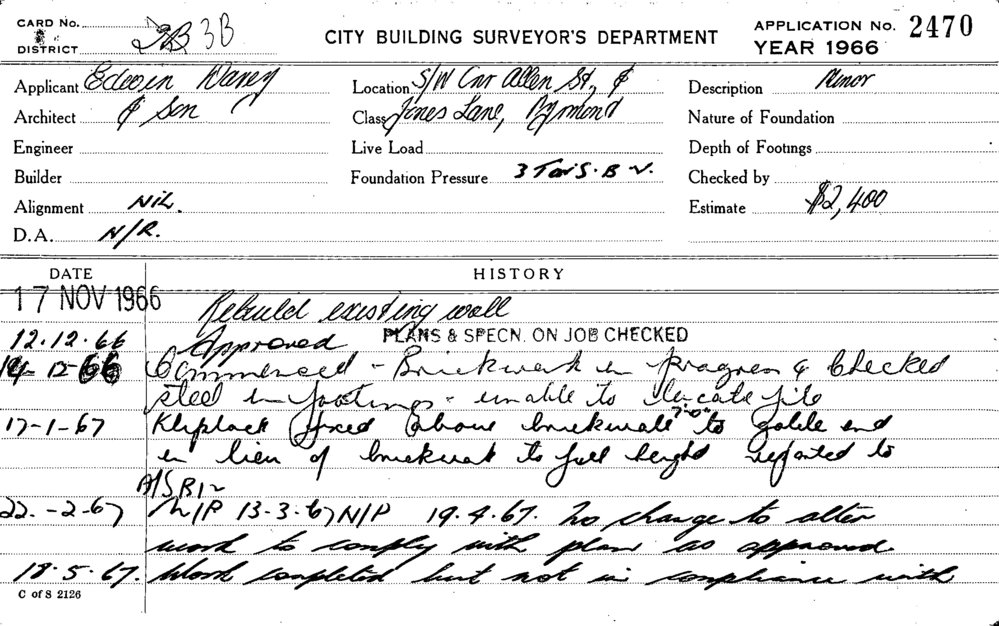 CARD No.
DISTRICT 2B 3B
CITY BUILDING SURVEYOR'S DEPARTMENT
APPLICATION No. 2470
YEAR 1966
Applicant Edwin Davey Location S/W Cnr Allen St, & Description Minor
Architect & Son Class Jones Lane, Pyrmont Nature of Foundation
Engineer Live Load Depth of Footings
Builder Foundation Pressure 3 Tons. B.V. Checked by
Alignment NiL. Estimate $2,400
D.A. N/R.
DATE HISTORY
17 NOV 1966 Rebuild existing wall
12.12.66 Approved PLANS & SPECN. ON JOB CHECKED
14-12-66 Commenced - Brickwork in progress & checked
steel in footings - unable to locate file
17-1-67 Kliplock fixed above brickwall 7'-0" to gable end
in lieu of brickwork to full height reported to
A/SBI
22.-2-67 W/P 13-3-67 N/P 19.4.67. No change to alter
work to comply with plan as approved.
18.5.67. Work completed but not in compliance with
C of S 2126